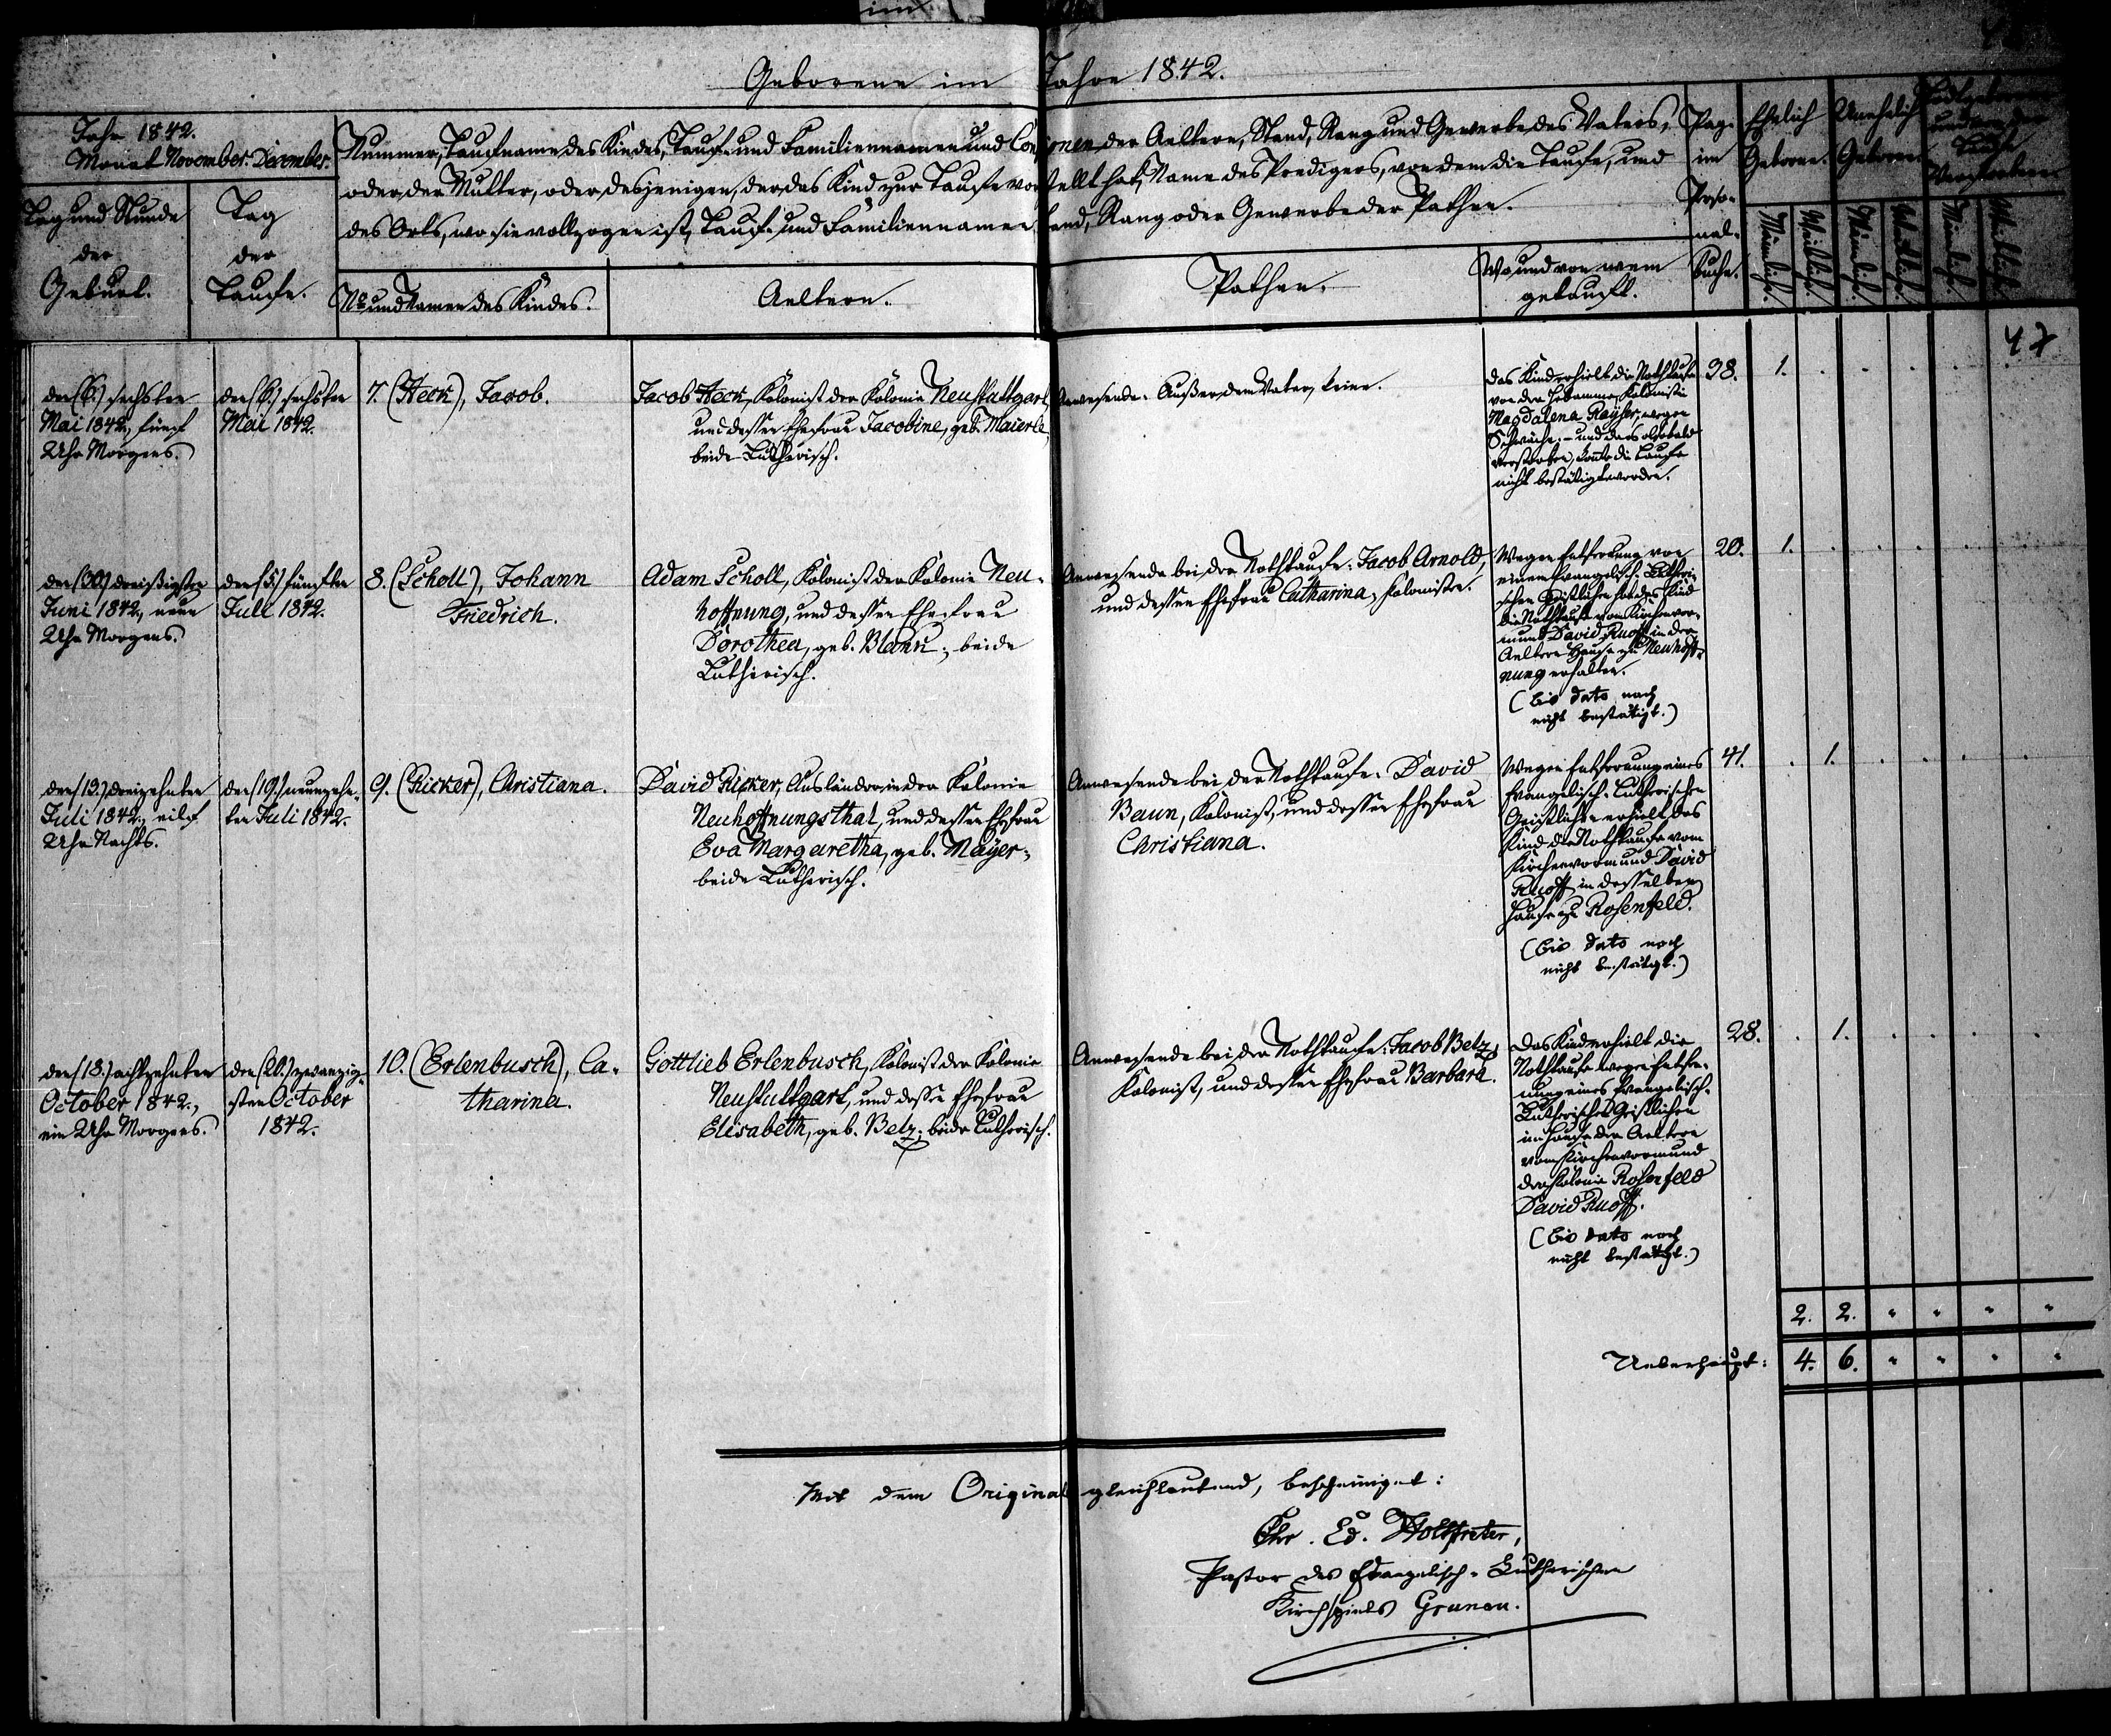 im
Geborene im Jahre 1842.
Jahr 1842.
Monat November. December.
Tag und Stunde
der
Geburt.
Tag
der
Taufe.
Nummer, Taufname des Kindes, Tauf- und Familiennamen und Confessionen der Aeltern, Stand, Rang und Gewerbe des Vaters,
oder der Mutter, oder desjenigen, der das Kind zur Taufe vorstellt hat, Name des Predigers, von dem die Taufe, und
des Orts, wo sie vollzogen ist, Tauf- und Familiennamen, Stand, Rang oder Gewerbe der Pathen.
No und Namen des Kindes.
Aeltern.
Pathen.
Wo und von wem
getauft.
Pag.
im
Perso-
nal-
buche.
Ehelich
Geborne.
Unehelich
Geborne.
Todtgeborene
und vor der
Taufe
Verstorbene.
Männlich.
Weiblich.
Männlich.
Weiblich.
Männlich.
Weiblich.
47
den (6.) sechsten
Mai 1842, fünf
Uhr Morgens.
den (6.) sechsten
Mai 1842.
7. (Heck), Jacob.
Jacob Heck, Kolonist der Kolonie Neustuttgart,
und dessen Ehefrau Jacobine, geb. Maierle,
beide Lutherisch.
Anwesende: Außer dem Vater, keine.
Das Kind erhielt die Nothtaufe
von der Hebamme, Kolonistin
Magdalena Rayher, wegen
Schwäche, - und da es alsobald
verstorben, konnte die Taufe
nicht bestätigt werden.
38.
1.
den (30.) dreißigsten
Juni 1842, neun
Uhr Morgens.
den (5.) fünften
Juli 1842.
8. (Scholl), Johann
Friedrich.
Adam Scholl, Kolonist der Kolonie Neu-
hoffnung, und dessen Ehefrau
Dorothea, geb. Blann; beide
Lutherisch.
Anwesende bei der Nothtaufe: Jacob Arnold,
und dessen Ehefrau Catharina, Kolonisten.
Wegen Entfernung von
einem Evangelisch-Lutheri-
schen Geistlichen hat das Kind
die Nothtaufe vom Kirchenvor-
mund David Ruoff in der
Aeltern Hause zu Neuhoff-
nung erhalten.
(bis dato noch
nicht bestätigt.)
20.
1.
den (13.) dreizehnten
Juli 1842, eilf
Uhr Nachts.
den (19.) neunzehn-
ten Juli 1842.
9. (Ricker), Christiana.
David Ricker, Ausländer in der Kolonie
Neuhoffnungsthal, und dessen Ehefrau
Eva Margaretha, geb. Mayer;
beide Lutherisch.
Anwesende bei der Nothtaufe: David
Baun, Kolonist, und dessen Ehefrau
Christiana.
Wegen Entfernung eines
Evangelisch-Lutherischen
Geistlichen erhielt das
Kind die Nothtaufe vom
Kirchenvormund David
Ruoff in desselben
Hause zu Rosenfeld.
(bis dato noch
nicht bestätigt.)
41.
1.
den (18.) achtzehnten
October 1842,
ein Uhr Morgens.
den (20.) zwanzig-
sten October
1842.
10. (Erlenbusch), Ca-
tharina.
Gottlieb Erlenbusch, Kolonist der Kolonie
Neustuttgart, und dessen Ehefrau
Elisabeth, geb. Betz; beide Lutherisch.
Anwesende bei der Nothtaufe: Jacob Betz,
Kolonist, und dessen Ehefrau Barbara.
Das Kind erhielt die
Nothtaufe wegen Entfer-
nung eines Evangelisch-
Lutherischen Geistlichen
im Hause der Aeltern
vom Kirchenvormund
der Kolonie Rosenfeld
David Ruoff.
(bis dato noch
nicht bestätigt.)
28.
1.
2. 2. " " " "
Ueberhaupt: 4. 6. " " " "
Mit dem Original gleichlautend, bescheiniget:
Chr. Ed. Holtfreter,
Pastor des Evangelisch-Lutherischen
Kirchspiels Grunau.